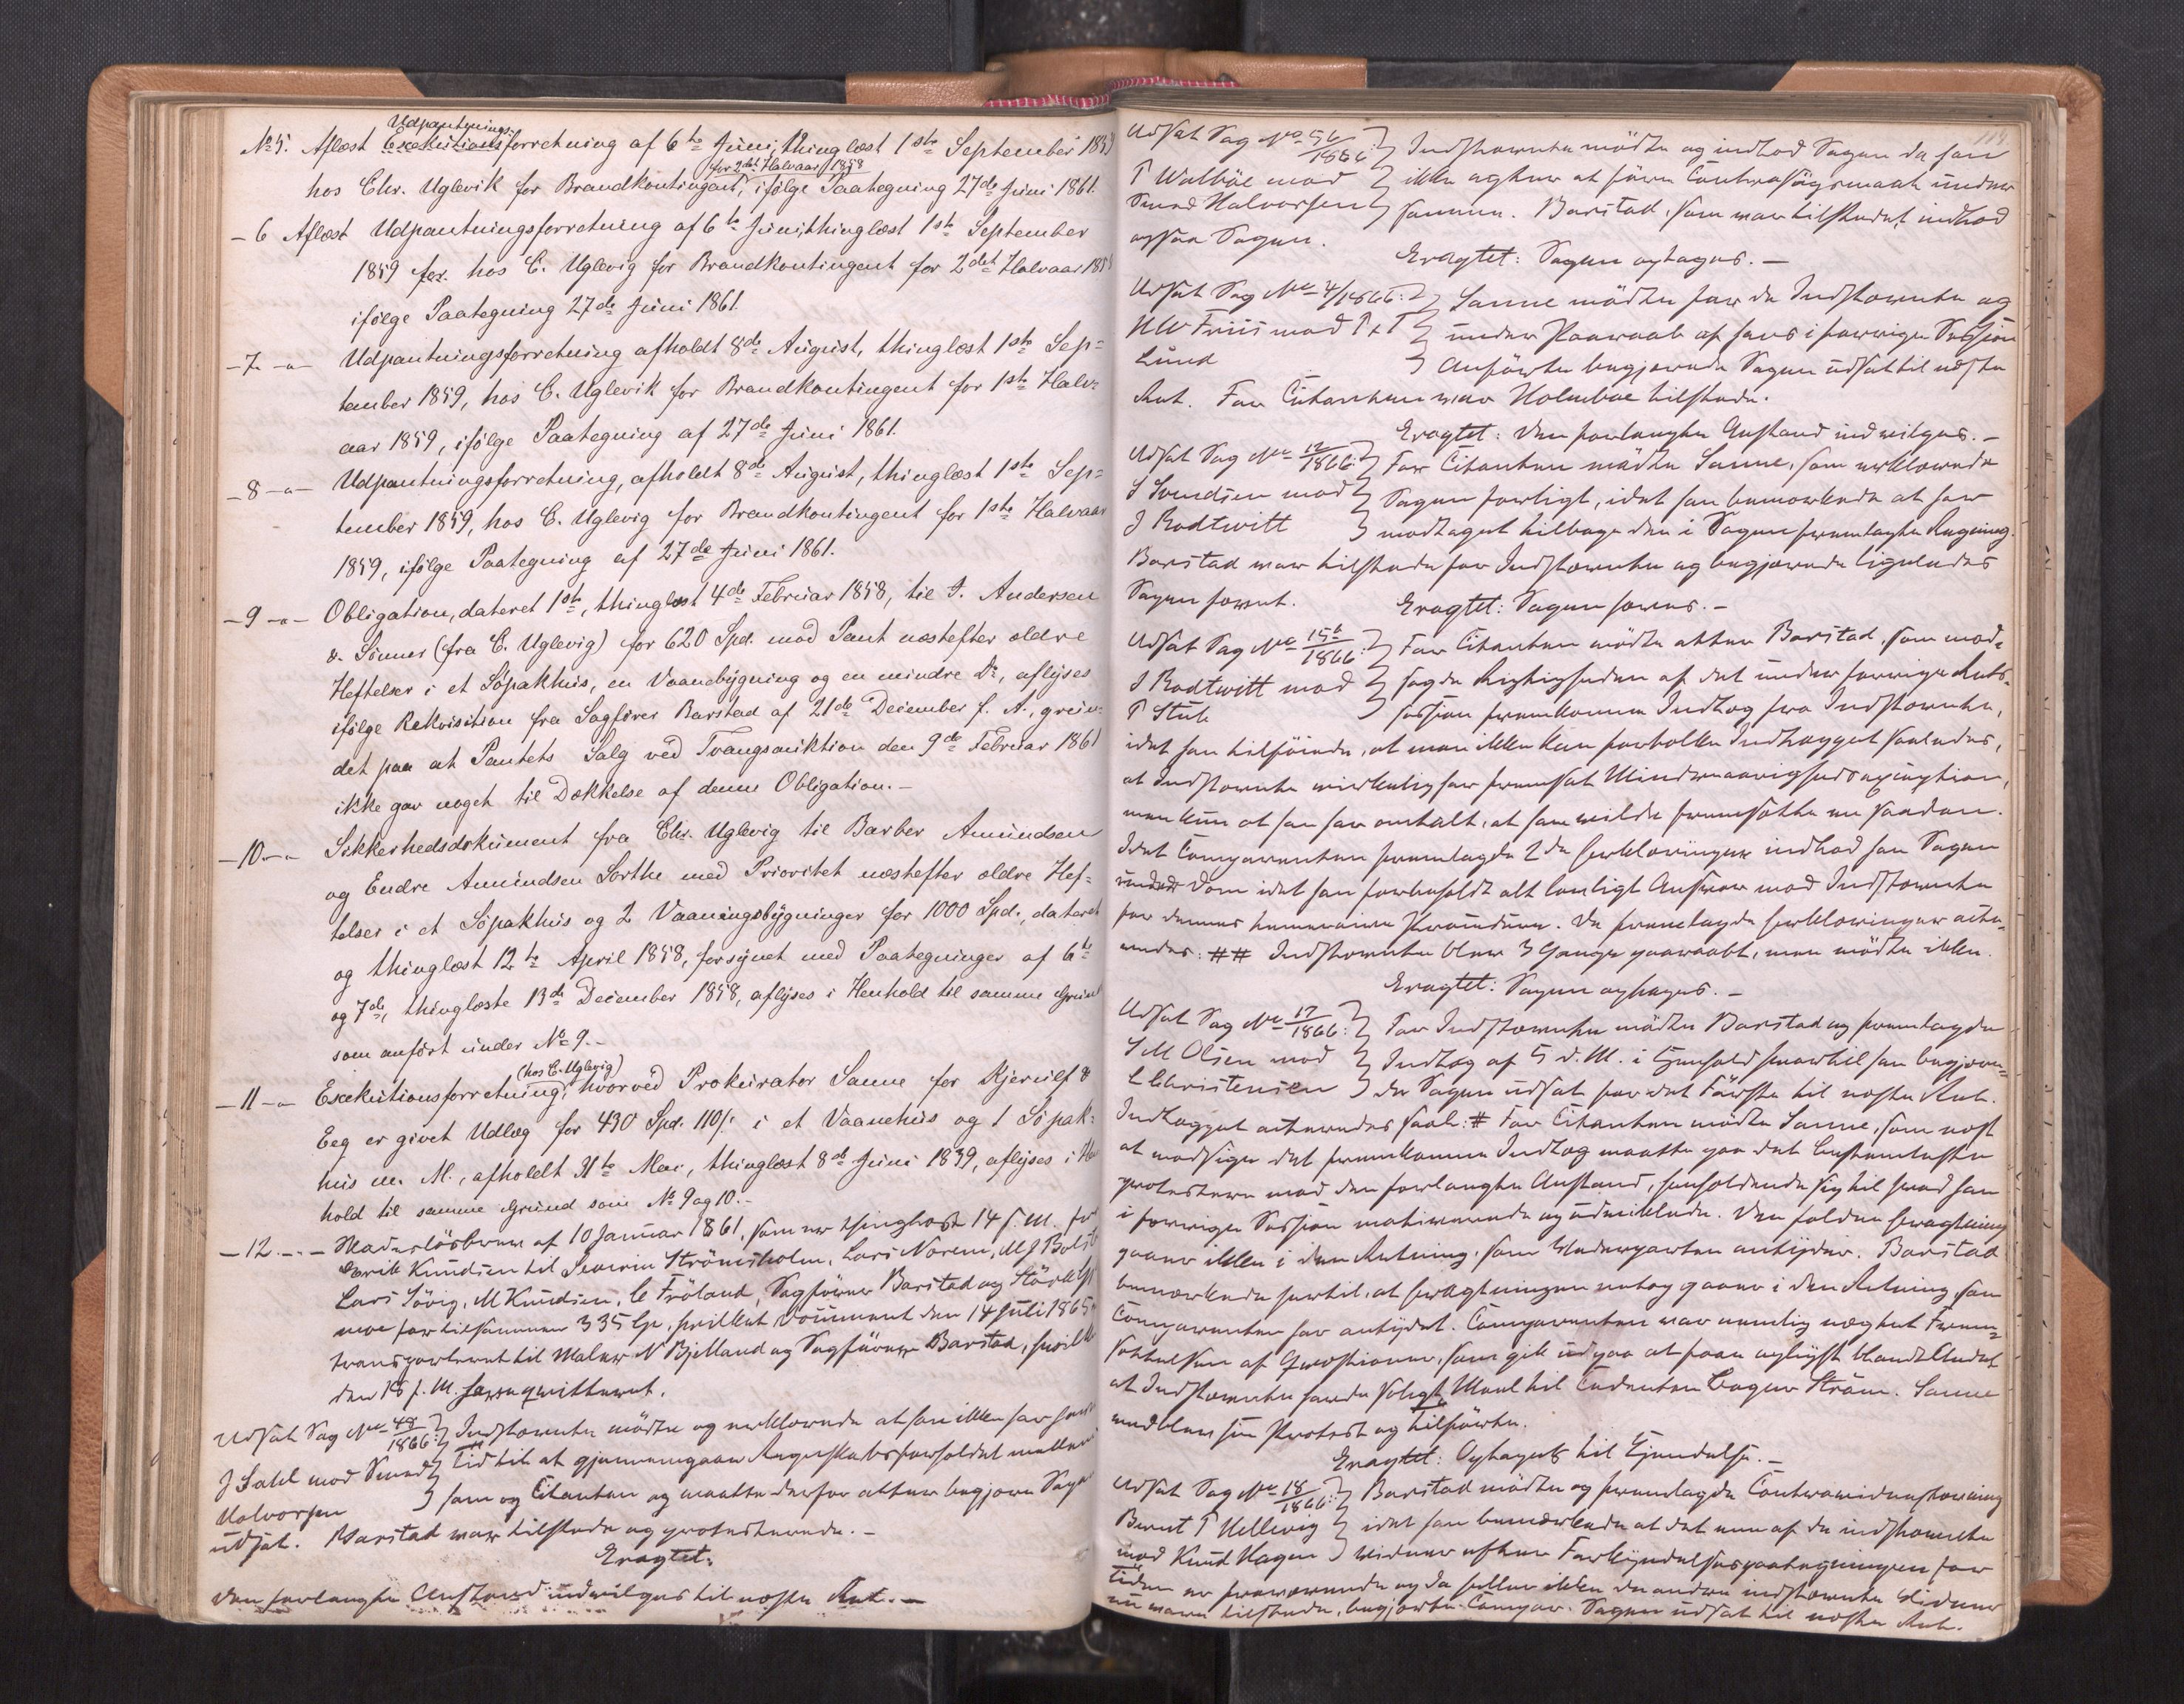 No 5. Aflæst Exekutionsforretning af 6te Juni, thinglæst 1ste September 1859
Udpantnings-
hos Chr. Uglevik for Brandkontingent, ifølge Paategning 27de Juni 1861.
for 2det Halvaar 1858
- 6 Aflæst Udpantningsforretning af 6te Juni, thinglæst 1ste September
1859 for. hos C. Uglevig for Brandkontingent for 2det Halvaar 1858
ifølge Paategning 27de Juni 1861.
- 7 -"- Udpantningsforretning afholdt 8de August, thinglæst 1ste Sep=
tember 1859, hos C. Uglevik for Brandkontingent for 1ste Halv=
aar 1859, ifølge Paategning af 27de Juni 1861.
- 8 -"- Udpantningsforretning, afholdt 8de August, thinglæst 1ste Sep=
tember 1859, hos C. Uglevig for Brandkontingent for 1ste Halvaar
1859, ifølge Paategning af 27de Juni 1861.
- 9 -"- Obligation, dateret 1ste, thinglæst 4de Februar 1858, til J. Andersen
& Sønner (fra C. Uglevig) for 620 Spd. mod Pant næstefter ældre
Heftelser i et Søpakhus, en Vaanebygning og en mindre Do, aflyses
ifølge Rekvisition fra Sagfører Barstad af 21de December f. A., grun-
det paa at Pantets Salg ved Tvangsauktion den 9de Februar 1861
ikke gav noget til Dækkelse af denne Obligation. -
- 10 -"- Sikkerhedsdokument fra Chr. Uglevig til Barber Amundsen
og Endre Amundsen Sorthe med Prioritet næstefter ældre Hef=
telser i et Søpakhus og 2 Vaaningsbygninger for 1000 Spd., dateret
og thinglæst 12te April 1858, forsynet med Paategninger af 6te
og 7de, thinglæste 13de December 1858, aflyses i Henhold til samme Grund
som anført under No 9. -
(hos C. Uglevig)
- 11 -"- Exekutionsforretning, hvorved Prokurator Sanne for Kjerulf &
Eeg er givet Udlæg for 430 Spd. 110 s. i et Vaanehus og 1 Søpak=
hus m. M., afholdt 31te Mai, thinglæst 8de Juni 1859, aflyses i Hen
hold til samme Grund som No 9 og 10. -
- 12 - - Skadesløsbrev af 10 Januar 1861, som er thinglæst 14 s. M. fra
Erik Knudsen til Severin Strømsholm, Lars Norem, M J
Lars Søvig, M Knudsen, C Frøland, Sagfører Barstad og
moe for tilsammen 335 Spd, hvilket Document den 14 Juli 1865 er
transporteret til Maler N Bjelland og Sagfører Barstad, hvilke
den 15 f. M. have qvitteret.
Udsat Sag No 48/1866: Indstævnte mødte og erklærede at han ikke har havt
J Dahl mod Svend Tid til at gjennemgaae Regnskabsforholdet mellem
Halvorsen ham og Citanten og maatte derfor atter begjære Sagen
udsat. Barstad var tilstede og protesterede. -
Eragtet:
Den forlangte Anstand indvilges til næste Ret. -
114
Udsat Sag No 56/1866: Indstævnte mødte og indlod Sagen da han
T Walbøe mod ikke agter at føre Contrasøgsmaal under
Svend Halvorsen samme. Barstad, som var tilstedet, indlod
ogsaa Sagen.
Eragtet: Sagen optages. -
Udsat Sag No 4/1866: Sanne mødte for de Indstævnte og
N W Friis mod T & T under Paaraab af hans i forrige Session
Lund Anførte begjærede Sagen udsat til næste
Ret. For Citanten var Holmboe tilstede.
Eragtet: Den forlangte Anstand indvilges. -
Udsat Sag No 12/1866: For Citanten mødte Sanne, som erklærede
S Svendsen mod Sagen forligt, idet han bemærkede at have
J Rodtwitt modtaget tilbage den i Sagen fremlagte Regning.
Barstad var tilstede for Indstævnte og begjærede ligeledes
Sagen hævet. Eragtet: Sagen hæves. -
Udsat Sag No 15b/1866: For Citanten mødte atter Barstad, som mod-
J Rodtwitt mod sagde Rigtigheden af det under forrige Rets-
T Stub session fremkomne Indlæg fra Indstævnte,
idet han tilføiede, at man ikke kan fortolke Indlægget saaledes,
at Indstævnte virkelig har fremsat Mindreaarighedsexception,
men kun at han har omtalt, at han vilde fremsætte en saadan.
Idet Comparenten fremlagde 2de Erklæringer indlod han Sagen
under Dom idet han forbeholdt alt lovligt Ansvar mod Indstævnte
for dennes temeraire Procedure. De fremlagde Erklæringer acte-
redes: ## Indstævnte blev 3 Gange paaraabt, men mødte ikke.
Eragtet: Sagen optages. -
Udsat Sag No 17/1866: For Indstævnte mødte Barstad og fremlagde
S M Olsen mod Indlæg af 5 d. M. i Henhold hvortil han begjære-
C Christensen de Sagen udsat for det Første til næste Ret.
Indlægget acteredes saal: # For Citanten mødte Sanne, som næst
at modsige det fremkomne Indlæg maatte paa det Bestemteste
protestere mod den forlangte Anstand, henholdende sig til hvad han
i forrige Session motiverede og udviklede. Den faldne Eragtning
gaaer ikke i den Retning, som Modparten antyder. Barstad
bemærkede hertil, at Eragtningen netop gaaer i den Retning, som
Comparenten har antydet. Comparenten var nemlig nægtet Frem-
sættelsen af Qvæstioner, som gik ud paa at faae oplyst blandt Andet
at Indstævnte havde solgt Meel til Cedenten Caspar Strøm. Sanne
nedlagde sin Protest og tilførte.
Eragtet: Optages til Kjendelse. -
Udsat Sag No 18/1866: Barstad mødte og fremlagde Contravidnestævning
Bernt T Hellevig idet han bemærkede at det ene af de indstævnte
mod Knud Hagen Vidner efter Forkyndelsespaategningen for
Tiden er fraværende og da heller ikke de andre indstævnte Vidner
nu være tilstede, begjærte Compar. Sagen udsat til næste Ret.